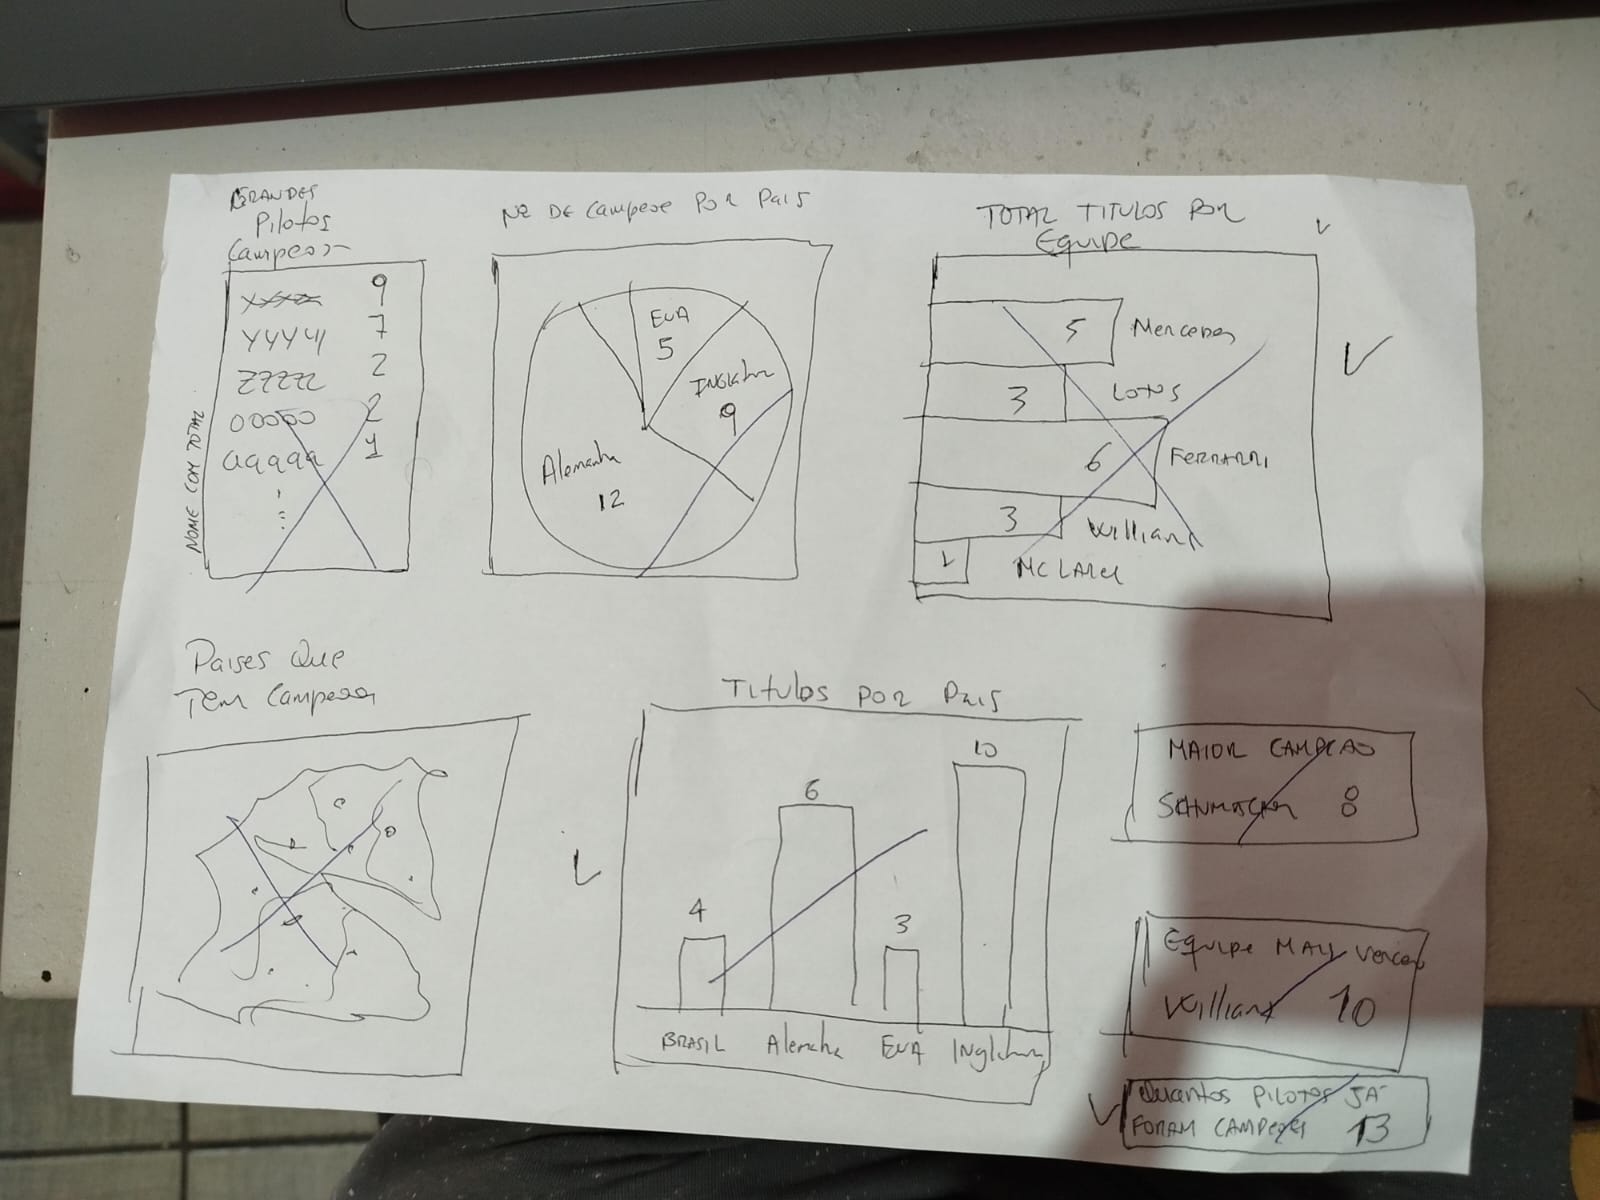 GRANDES
Pilotos
Campeos
9
YYYYY 7
ZZZZZ 2
OOOOO 2
aaaaa 1
NOME COM TOTAL
Nº DE Campeoe POR PAIS
EUA
5
9
Alemanha
12
TOTAL TITULOS POR
Equipe
5 Mercedes
3 LOTUS
6 FERRARRI
3 Willians
MCLAREN
Paises Que
Tem Campeoes
TITULOS POR PAIS
4
6
3
10
BRASIL Alemanha EUA Inglaterra
MAIOR CAMPEAO
8
Equipe MAIS
Willians 10
Quantos PILOTOS JÁ
FORAM CAMPEOES 13